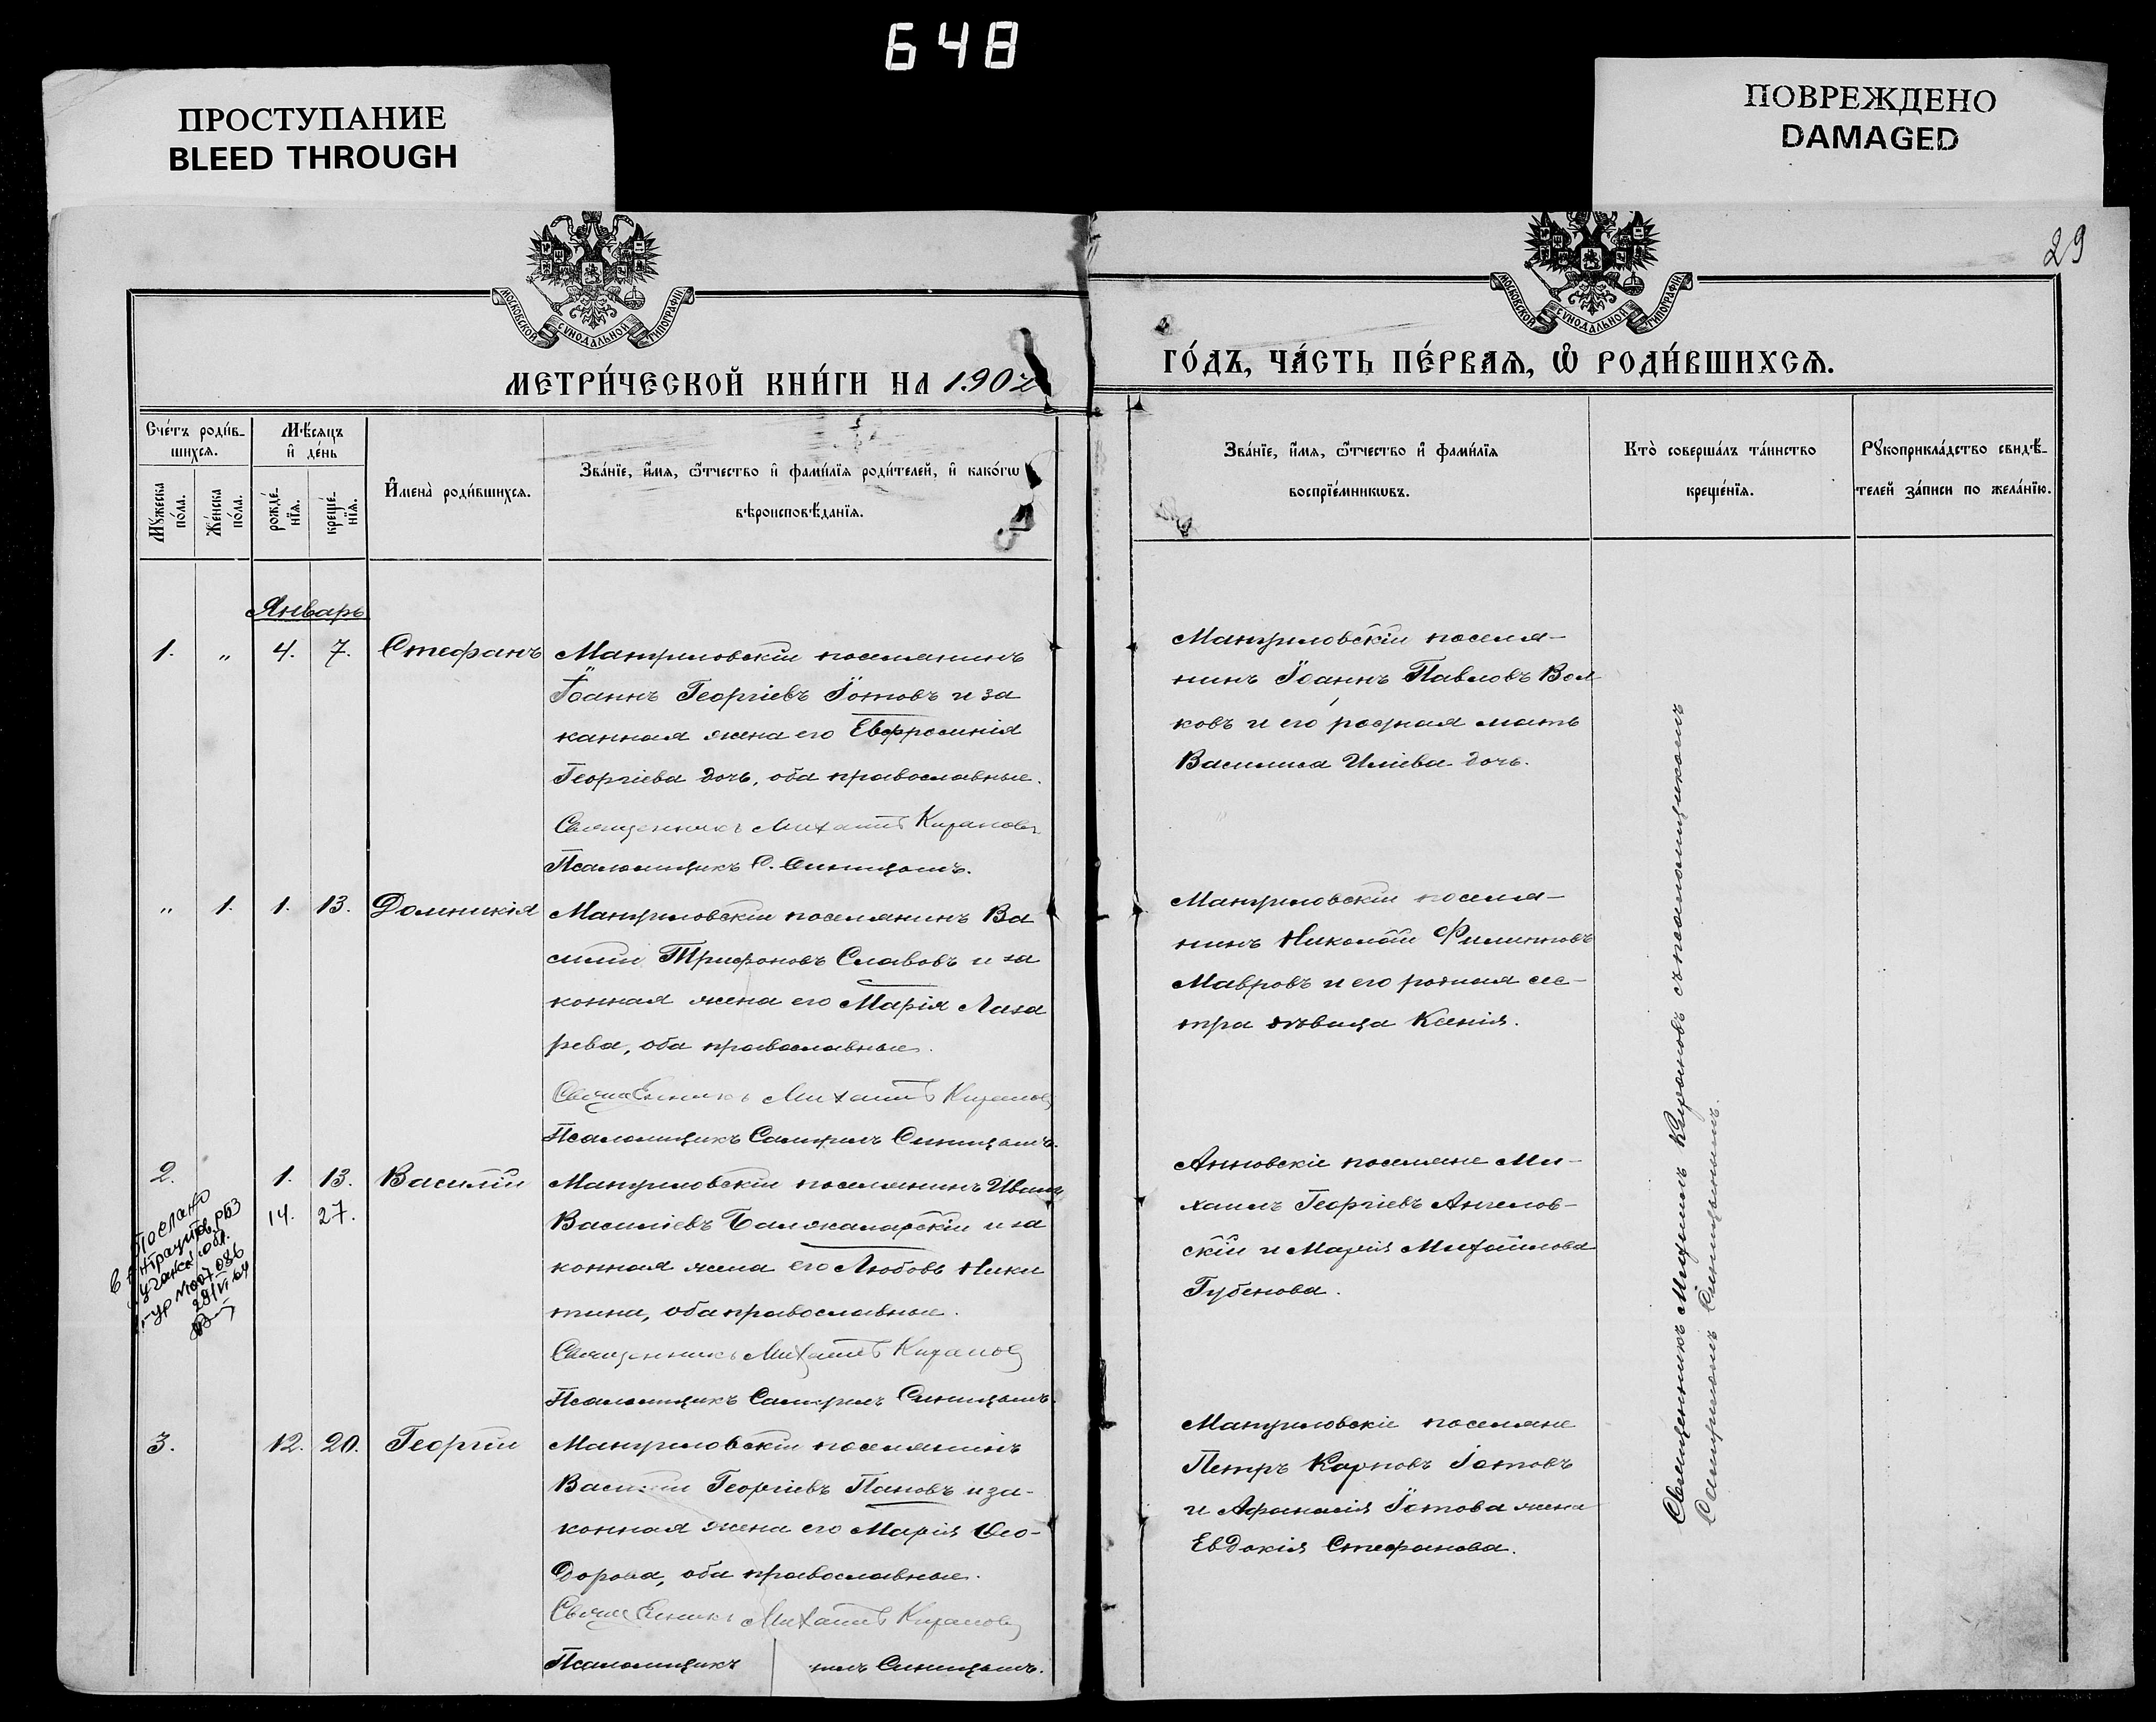 648
ПРОСТУПАНИЕ
BLEED THROUGH
ПОВРЕЖДЕНО
DAMAGED
МОСКОВСКОЙ СѴНОДАЛЬНОЙ ТИПОГРАФІИ
МОСКОВСКОЙ СѴНОДАЛЬНОЙ ТИПОГРАФІИ
29
МЕТРИ́ЧЕСКОЙ КНИ́ГИ НА 1902
ГО́ДЪ, ЧА́СТЬ ПЕ́РВАѦ, Ѡ҆ РОДИ́ВШИХСѦ.
Сче́тъ роди́в-
шихсѧ.
Мꙋжеска
по́ла.
Же́нска
по́ла.
Мѣ́сѧцъ
и҆ де́нь
рожде́-
нїѧ.
креще́-
нїѧ.
И҆мена̀ роди́вшихсѧ.
Зва́нїе, и҆́мѧ, ѻ҆́тчество и҆ фамі́лїѧ роди́телей, и҆ како́гѡ
вѣроисповѣ́данїѧ.
Зва́нїе, и҆́мѧ, ѻ҆́тчество и҆ фамі́лїѧ
воспрїе́мникѡвъ.
Кто̀ соверша́лъ та́инство
креще́нїѧ.
Рꙋкоприкла́дство свидѣ́-
телей за́писи по жела́нїю.
Январь
1. „ 4. 7. Стефанъ
Мануиловскій поселянинъ
Іоаннъ Георгіевъ Іотовъ и за
конная жена его Евфросинія
Георгіева дочь, оба православные.
Священникъ Михаилъ Кирановъ
Псаломщикъ С. Синицынъ.
Мануиловскій поселя-
нинъ Іоаннъ Павловъ Вол
ковъ и его родная мать
Василиса Иліева дочь.
„ 1. 1. 13. Домникія
Мануиловскій поселянинъ Ва
силій Трифоновъ Славовъ и за
конная жена его Марія Лаза
рева, оба православные.
Священникъ Михаилъ Кирановъ
Псаломщикъ Самуилъ Синицынъ.
Мануиловскій поселя-
нинъ Николай Филипповъ
Мавровъ и его родная сес-
тра дѣвица Ксенія.
2. 1. 13. Василій
14. 27.
Послано
Мануиловскій поселянинъ Иванъ
Василіевъ Балжаларскій и за
конная жена его Любовь Ники
тина, оба православные.
Священникъ Михаилъ Кирановъ
Псаломщикъ Самуилъ Синицынъ.
Анновскіе поселяне Ми-
хаилъ Георгіевъ Ангелов-
скій и Марія Михайлова
Губенова.
3. 12. 20. Георгій
Мануиловскій поселянинъ
Василій Георгіевъ Пановъ и за-
конная жена его Марія Ѳео-
дорова, оба православные.
Священникъ Михаилъ Кирановъ
Псаломщикъ Синицынъ.
Мануиловскіе поселяне
Петръ Карповъ Іотовъ
и Афанасія Іотова жена
Евдокія Стефанова.
Священникъ Михаилъ Кирановъ съ псаломщикомъ
Самуиломъ Синицынымъ.